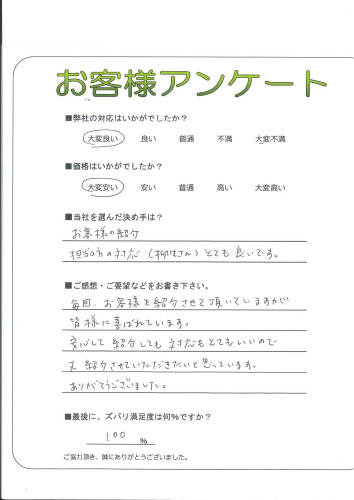 お客様アンケート
■弊社の対応はいかがでしたか?
大変良い 良い 普通 不満 大変不満
■価格はいかがでしたか?
大変安い 安い 普通 高い 大変高い
■当社を選んだ決め手は?
お客様の紹介
担当の方の対応(柳生さん)とても良いです。
■ご感想・ご要望などをお書き下さい。
毎回、お客様を紹介させて頂いていますが
皆様に喜ばれています。
安心して紹介しても対応もとてもいいので
又紹介させていただきたいと思っています。
ありがとうございました。
■最後に、ズバリ満足度は何%ですか?
100 %
ご協力頂き、誠にありがとうございました。